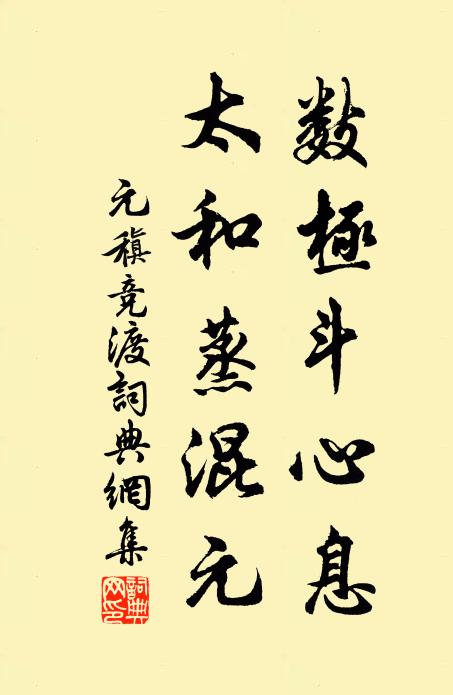 数極斗心息
太和蒸混元
元稹竞渡詞典網集
詞典網印